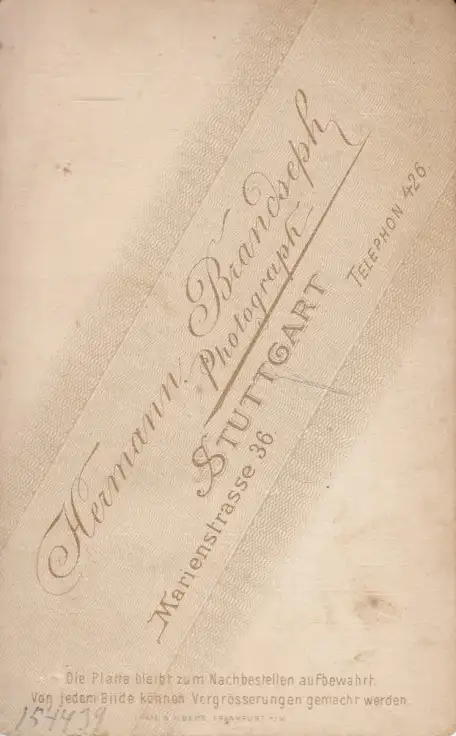 Hermann Brandseph
Photograph
STUTTGART
Marienstrasse 36.
TELEPHON 426.
Die Platte bleibt zum Nachbestellen aufbewahrt.
Von jedem Bilde können Vergrösserungen gemacht werden.
154439
FRANKFURT A/M